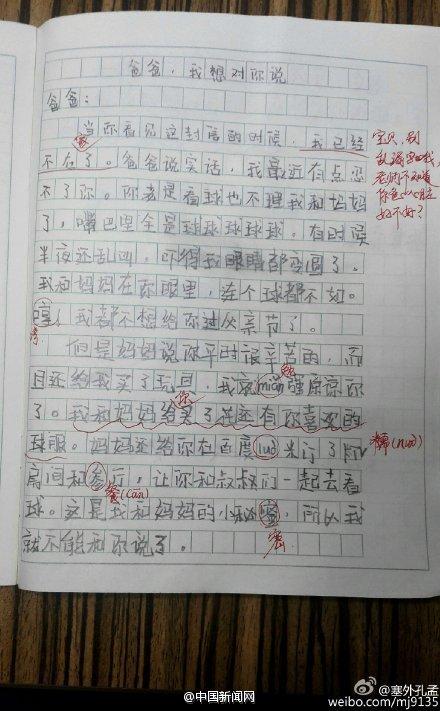 爸爸,我想对你说
爸爸:
当你看见这封信的时候,我已经
家
不在了。爸爸说实话,我最近有点忍
不了你。你老是看球也不理我和妈妈
了,嘴巴里全是球球球球球。有时候
半夜还乱叫,吓得我眼睛都变圆了。
我和妈妈在你眼里,连个球都不如。
哼!我都不想给你过父亲节了。
但是妈妈说你平时很辛苦的,而
且还给我买了玩具,我就mian强原谅你
勉
了。我和妈妈给买了花还有你喜欢的
你
球服。妈妈还给你在百度luo米订了
糯(nuo)
房间和参厅,让你和叔叔们一起去看
餐(can)
球。这是我和妈妈的小秘蜜,所以我
密
就不能和你说了。
宝贝,别
老师不知道
好不好?
@中国新闻网
@塞外孔孟
weibo.com/mj9135